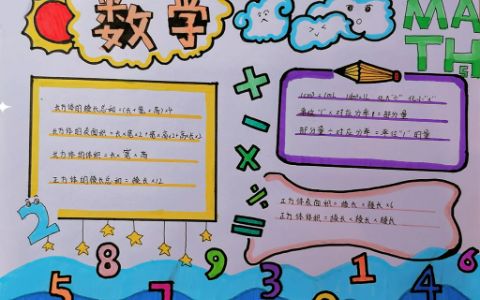 数学
MATHS
长方体的棱长总和=(长+宽+高)×4
长方体的表面积=长×宽×2+宽×高×2+高×长×2
长方体的体积=长×宽×高
正方体的棱长总和=棱长×12
单位"1"×对应分率=部分量
部分量÷对应分率=单位"1"的量
正方体表面积=棱长×棱长×6
正方体体积=棱长×棱长×棱长
+
-
×
÷
=
2
5
8
7
9
3
1
4
6